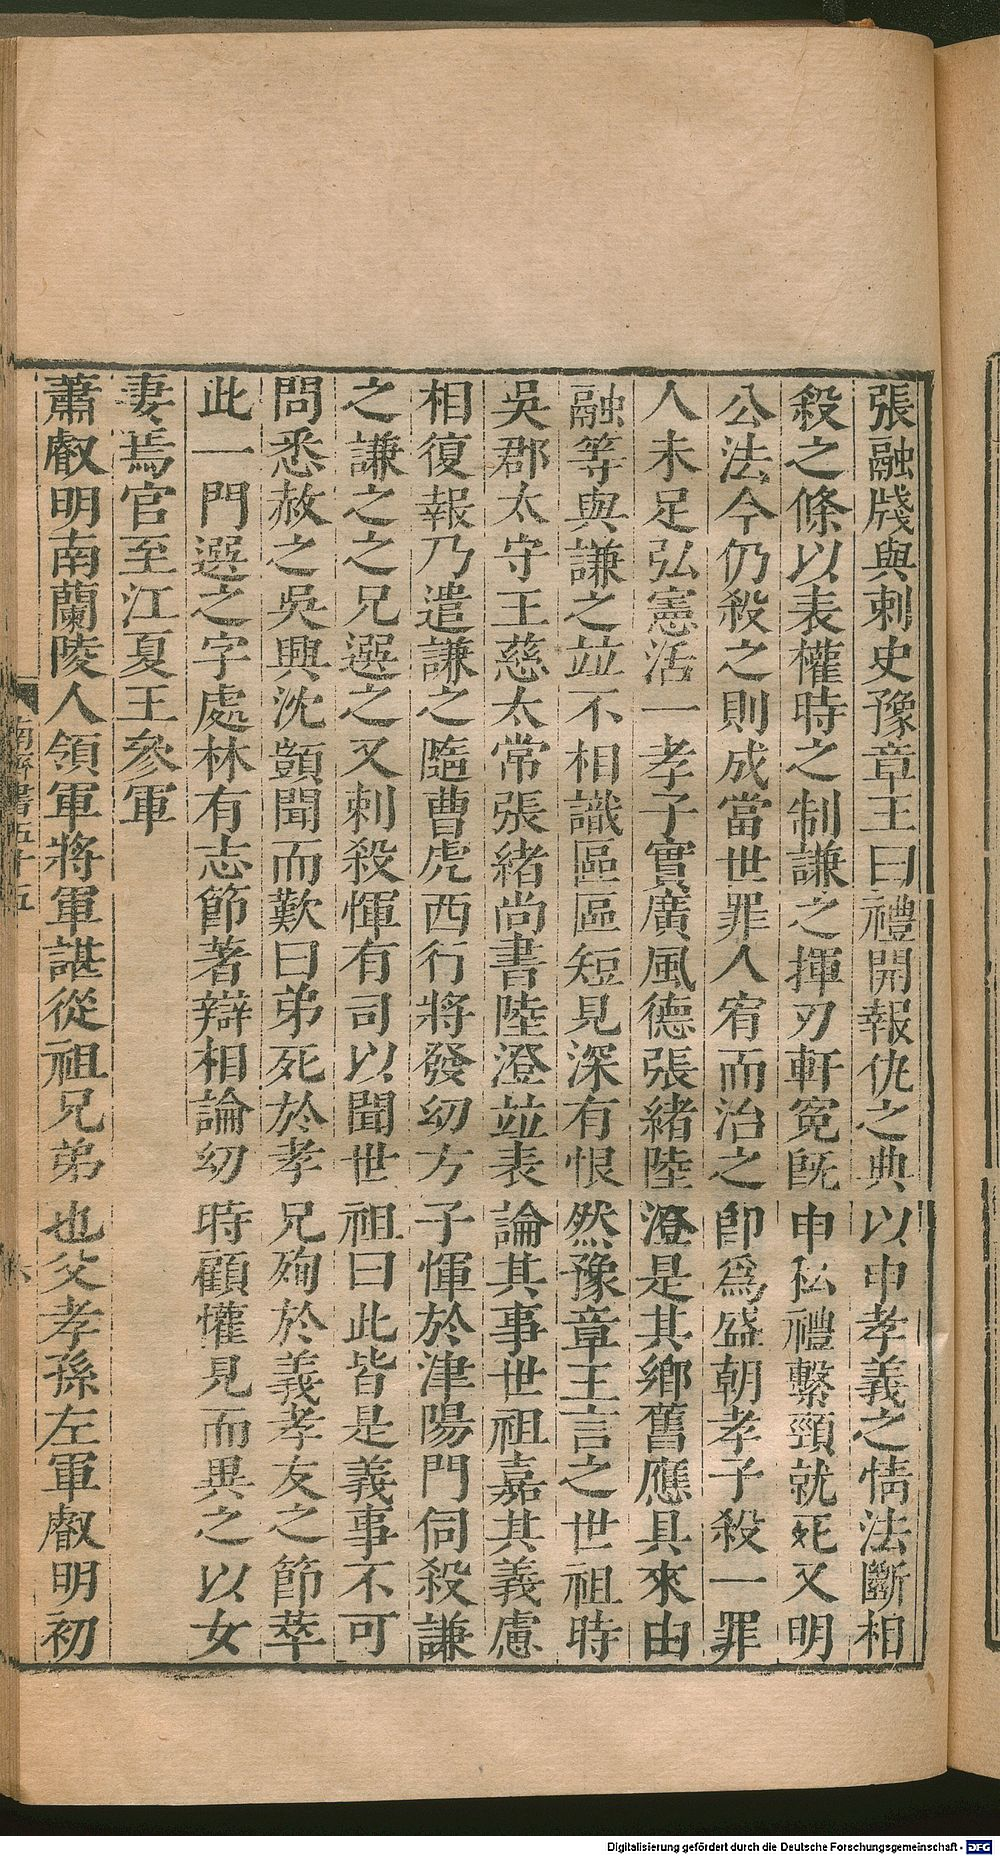 張融牋與刺史豫章王曰禮開報仇之典以申孝義之情法斷相
殺之條以表權時之制謙之揮刃軒寃旣申私禮繫頸就死又明
公法今仍殺之則成當世罪人宥而治之卽爲盛朝孝子殺一罪
人未足弘憲活一孝子實廣風德張緒陸澄是其鄉舊應具來由
融等與謙之竝不相識區區短見深有恨然豫章王言之世祖時
吳郡太守王慈太常張緒尚書陸澄竝表論其事世祖嘉其義慮
相復報乃遣謙之隨曹虎西行將發幼方子惲於津陽門伺殺謙
之謙之之兄選之又刺殺惲有司以聞世祖曰此皆是義事不可
問悉赦之吳興沈顗聞而歎曰弟死於孝兄殉於義孝友之節萃
此一門選之字處林有志節著辯相論幼時顧懽見而異之以女
妻焉官至江夏王參軍
蕭叡明南蘭陵人領軍將軍諶從祖兄弟也父孝孫左軍叡明初
南齊書五十五
八
Digitalisierung gefördert durch die Deutsche Forschungsgemeinschaft - DFG